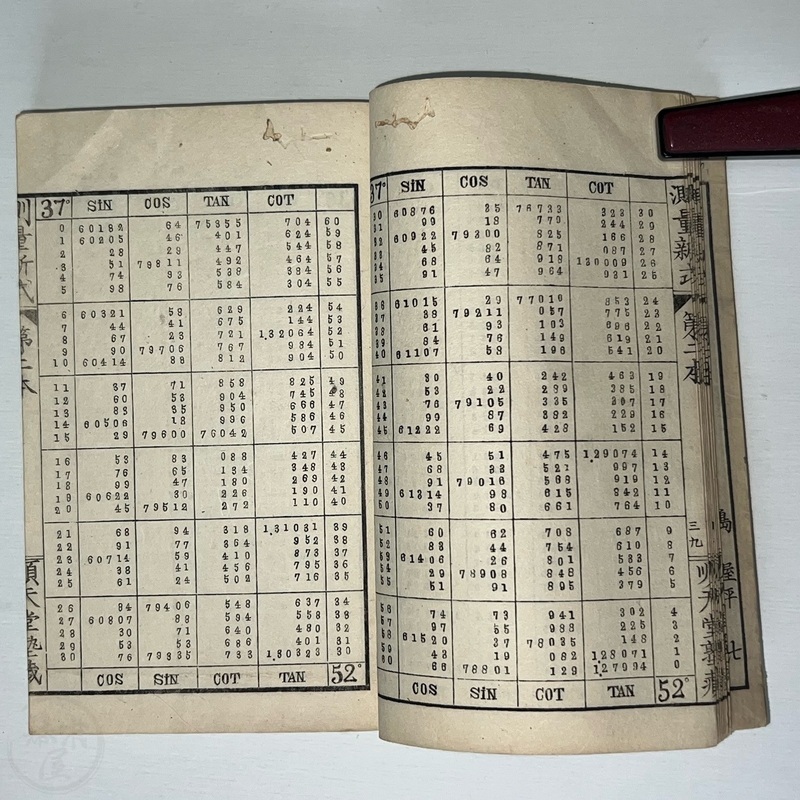 測量新式
第二本
順天堂塾蔵
37° SIN COS TAN COT
0 60182 64 75355 704 60
1 60205 46 401 624 59
2 28 29 447 544 58
3 51 79811 492 464 57
4 74 93 538 384 56
5 98 76 584 304 55
6 60321 58 629 224 54
7 44 41 675 144 53
8 67 23 721 1.32064 52
9 90 79706 767 984 51
10 60414 88 812 904 50
11 37 71 858 825 49
12 60 53 904 745 48
13 83 35 950 666 47
14 60506 18 996 586 46
15 29 79600 76042 507 45
16 53 83 088 427 44
17 76 65 134 348 43
18 99 47 180 269 42
19 60622 30 226 190 41
20 45 79512 272 110 40
21 68 94 318 1.31031 39
22 91 77 364 952 38
23 60714 59 410 873 37
24 38 41 456 795 36
25 61 24 502 716 35
26 84 79406 548 637 34
27 60807 88 594 558 33
28 30 71 640 480 32
29 53 53 686 401 31
30 76 79335 733 1.30323 30
COS SIN COT TAN 52°
37° SIN COS TAN COT
30 60876 35 76733 323 30
31 99 18 779 244 29
32 60922 79300 825 166 28
33 45 82 871 087 27
34 68 64 918 1.30009 26
35 91 47 964 931 25
36 61015 29 77010 853 24
37 38 79211 057 775 23
38 61 93 103 696 22
39 84 76 149 619 21
40 61107 58 196 541 20
41 30 40 242 463 19
42 53 22 289 385 18
43 76 79105 335 307 17
44 99 87 382 229 16
45 61222 69 428 152 15
46 45 51 475 1.29074 14
47 68 33 521 997 13
48 91 79016 568 919 12
49 61314 98 615 842 11
50 37 80 661 764 10
51 60 62 708 687 9
52 83 44 754 610 8
53 61406 26 801 533 7
54 29 78908 848 456 6
55 51 91 895 379 5
56 74 73 941 302 4
57 97 55 988 225 3
58 61520 37 78035 148 2
59 43 19 082 1.28071 1
60 66 78801 129 1.27994 0
COS SIN COT TAN 52°
測量新式
第二本
三九